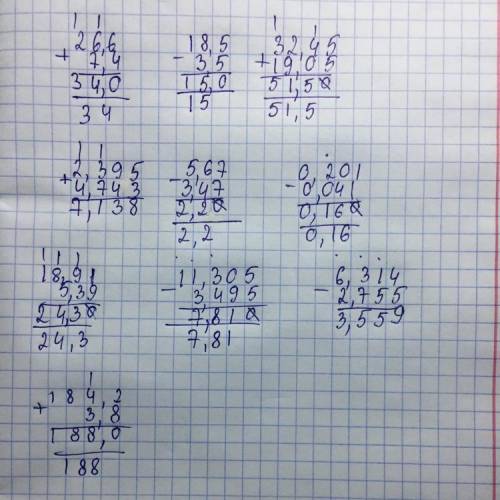 1 1
26,6
+
7,4
34,0
34
18,5
-
3,5
15,0
15
1 1
32,45
+19,05
51,50
51,5
1 1
2,395
+
4,743
7,138
5,67
-
3,47
2,20
2,2
0,201
-
0,041
0,160
0,16
1 1 1
18,91
5,39
24,30
24,3
11,305
-
3,495
7,810
7,81
6,314
-
2,755
3,559
1
184,2
+
3,8
188,0
188